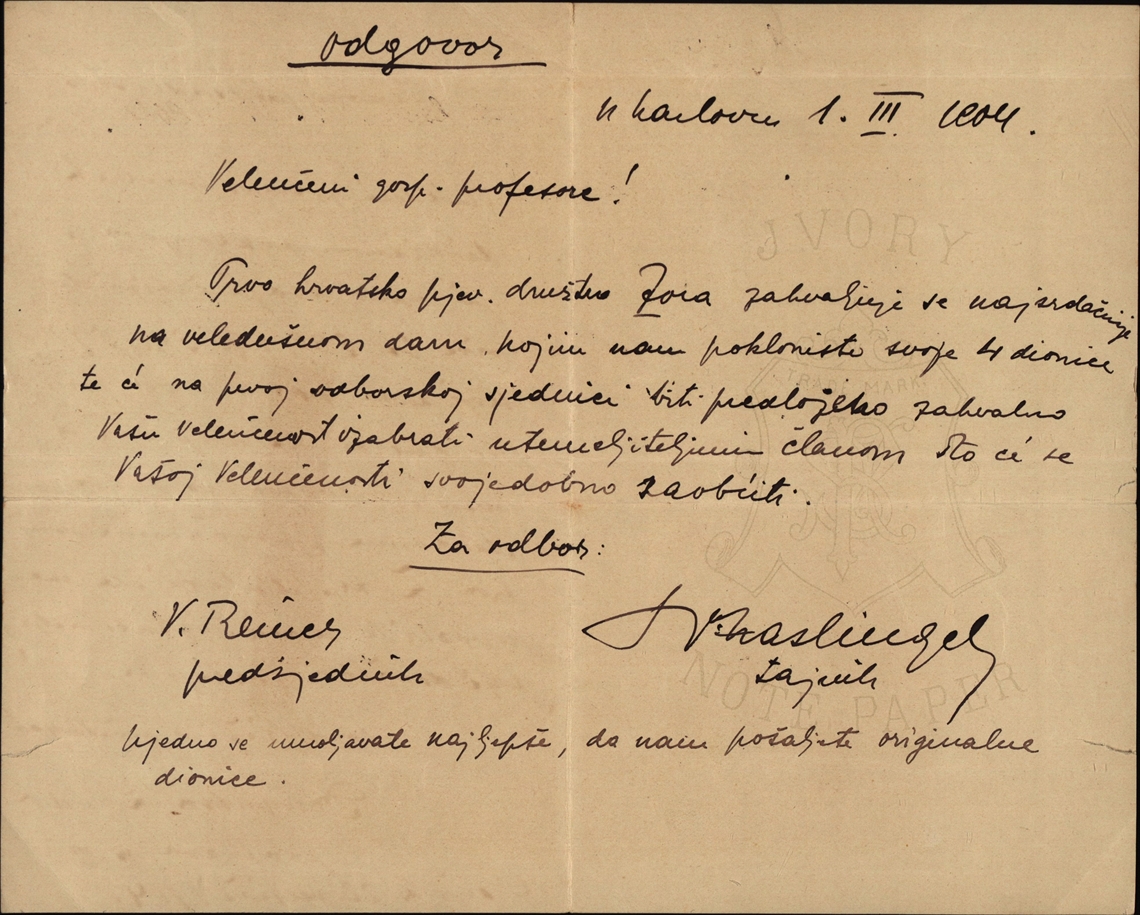 odgovor
U Karlovcu 1. III. 1904.
Veleučeni gosp. profesore!
Prvo hrvatsko pjev. društvo Zora zahvaljuje se najsrdačnije
na veledušnom daru, kojim nam pokloniste svoje 4 dionice
te će na prvoj odborskoj sjednici biti predloženo zahvalno
Vašu Veleučenost izabrati utemeljiteljnim članom što će se
Vašoj Veleučenosti svojedobno saobćiti.
Za odbor:
V. Reiner
predsjednik
tajnik
Ujedno se umoljavate najljepše, da nam pošaljete originalne
dionice.
JVORY
TRADE MARK
NOTE PAPER